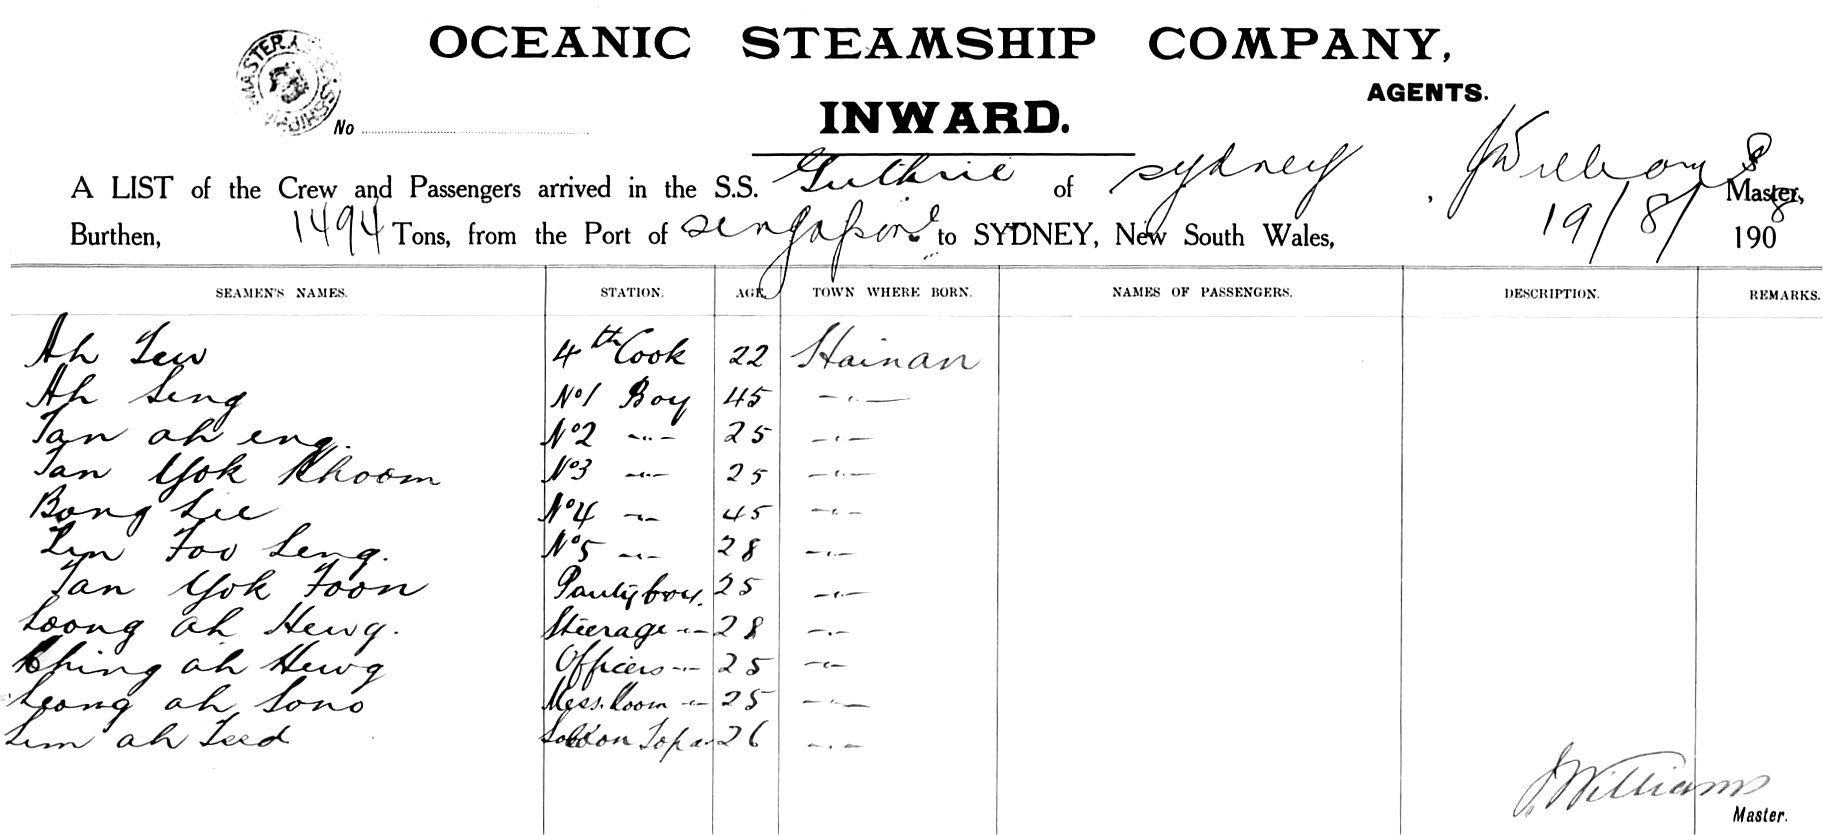 OCEANIC STEAMSHIP COMPANY,
AGENTS.
No
INWARD.
A LIST of the Crew and Passengers arrived in the S.S. Guthrie of Sydney, J Williams Master,
Burthen, 1494 Tons, from the Port of Singapore to SYDNEY, New South Wales, 19/8/ 1908
SEAMEN'S NAMES. STATION. AGE. TOWN WHERE BORN. NAMES OF PASSENGERS. DESCRIPTION. REMARKS.
Ah Lew 4th Cook 22 Hainan
Ah Seng No1 Boy 45 -"-
Tan ah eng. No2 -"- 25 -"-
Tan Yok Khoom No3 -"- 25 -"-
Bong See No4 -"- 45 -"-
Lim Foo Seng. No5 -"- 28 -"-
Tan Yok Foon Pantry boy. 25 -"-
Loong ah Hewg. Steerage -"- 28 -"-
Ching ah Hewg Officers -"- 25 -"-
Leong ah Sono Mess. Room -"- 25 -"-
Lim ah Teed Saloon Topas 26 -"-
J. Williams
Master.